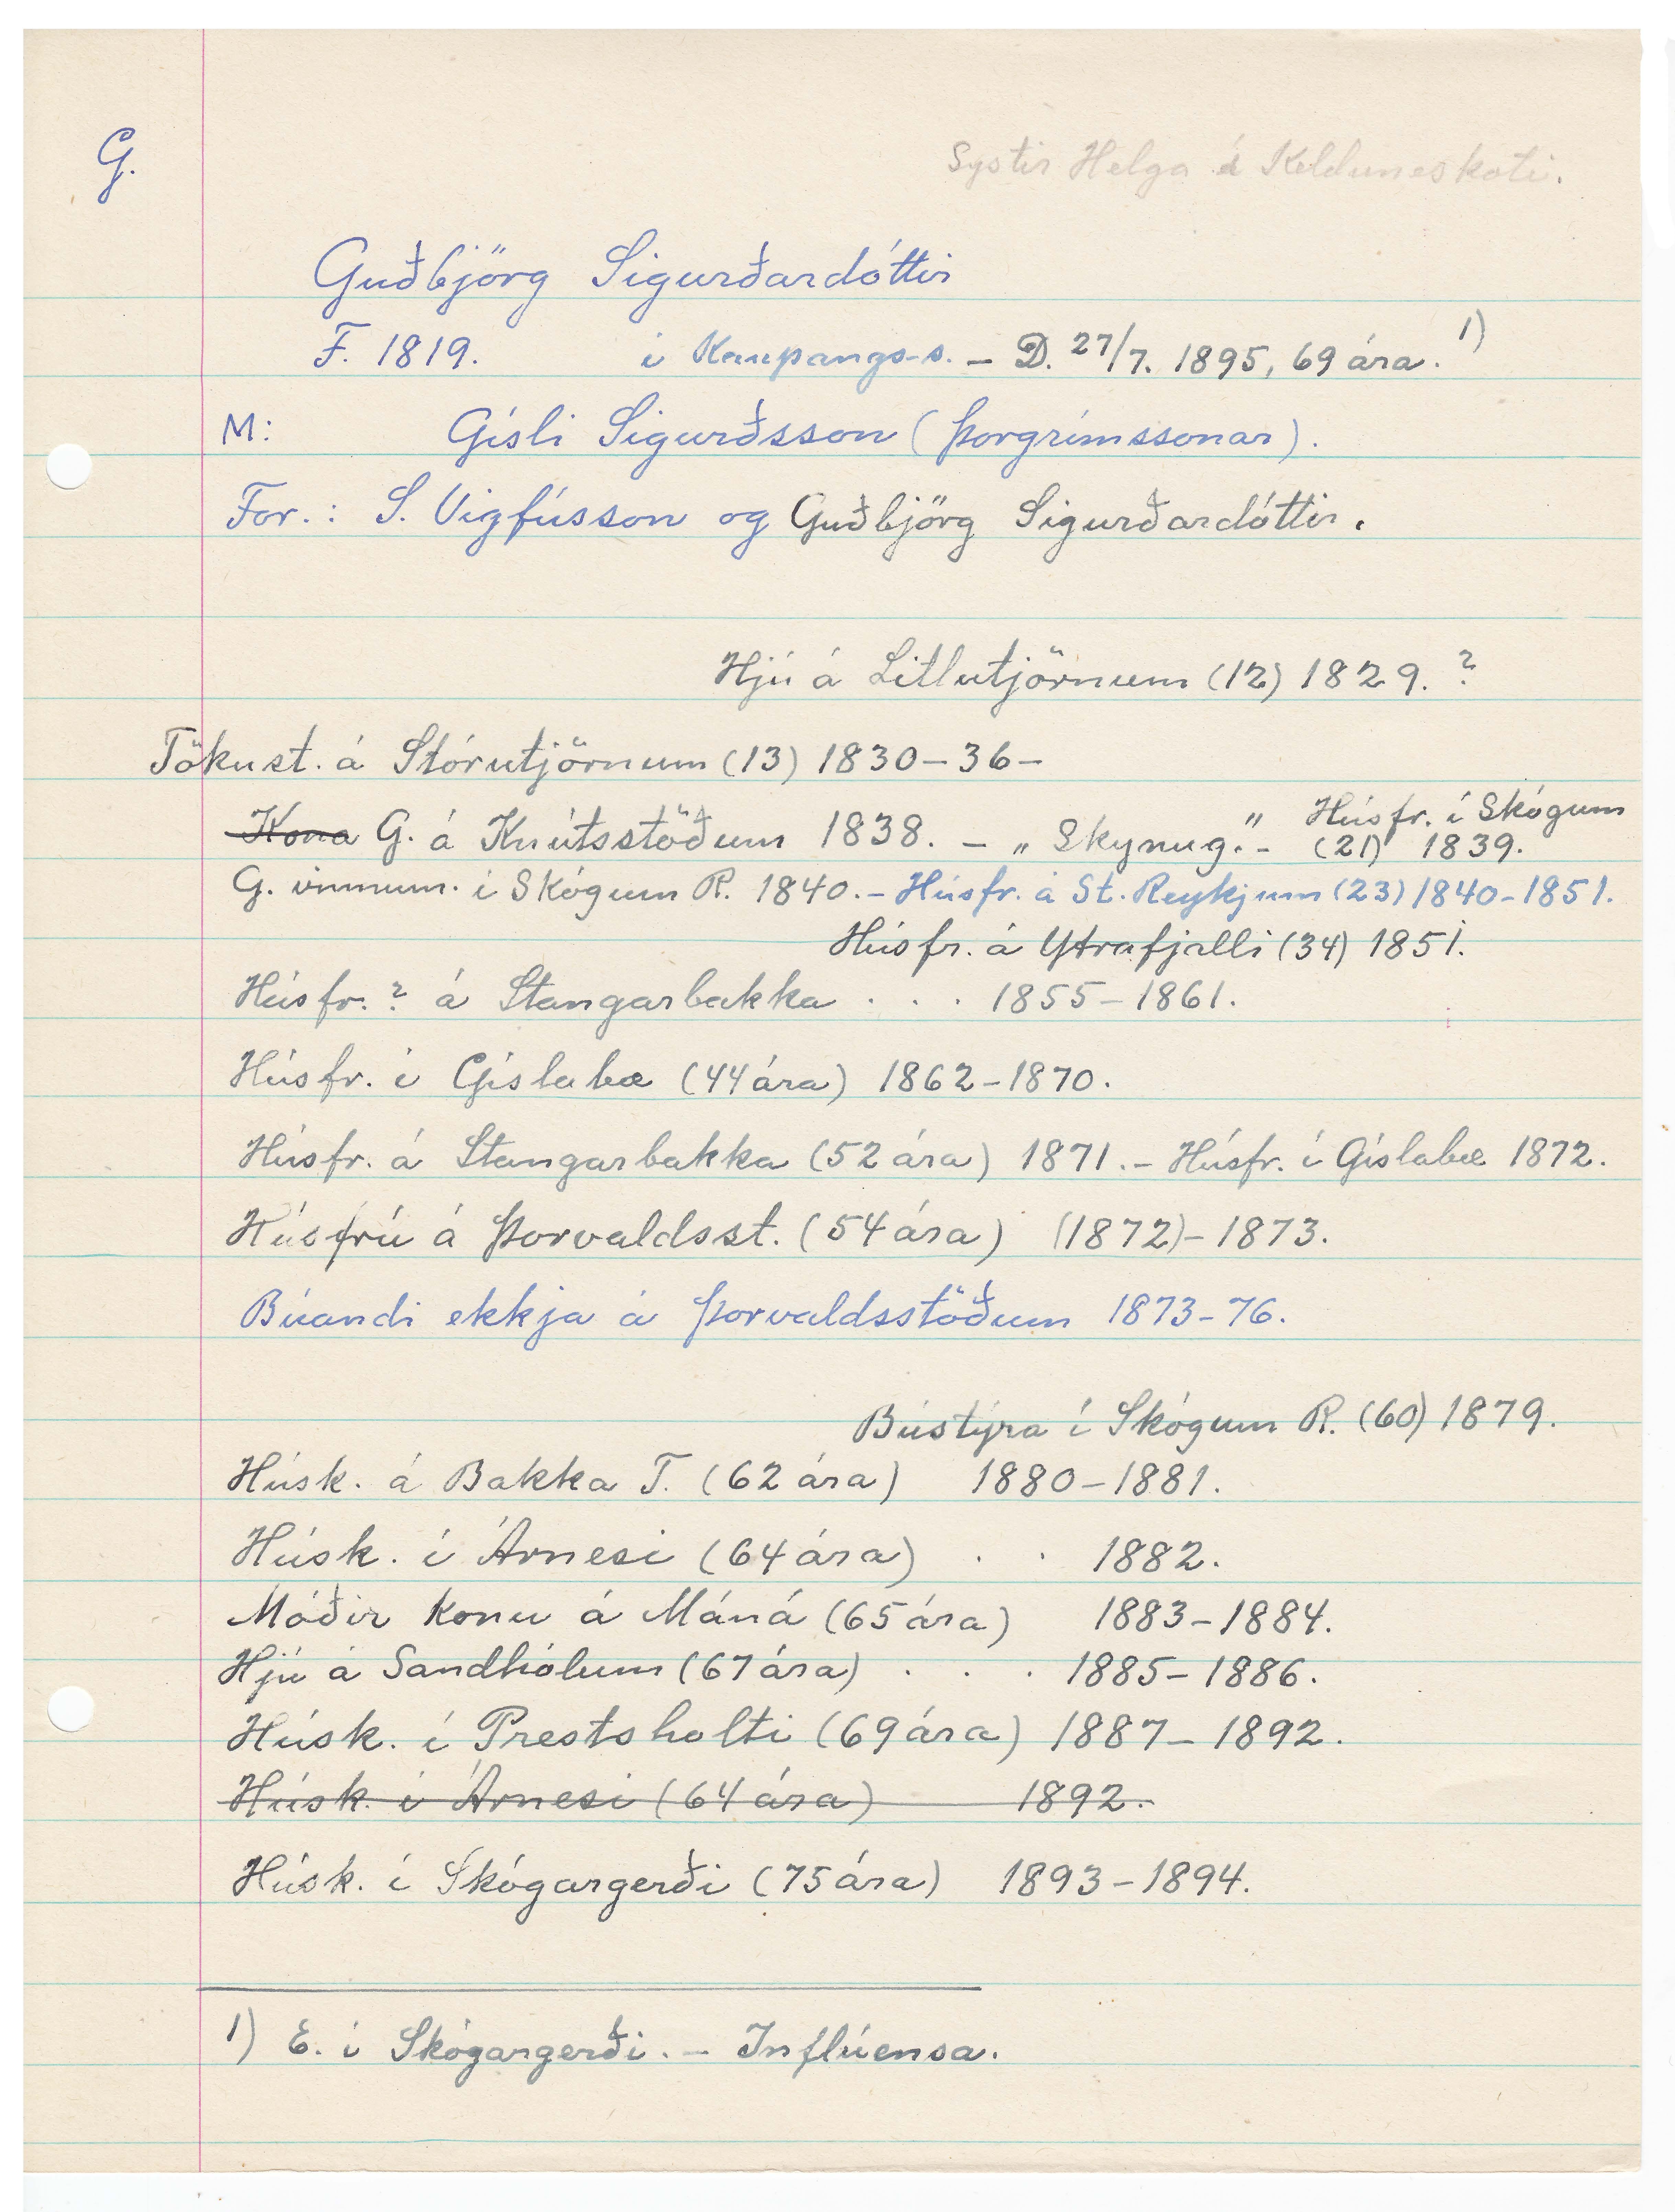 G.
Systir Helga á Kelduneskoti.
Guðbjörg Sigurðardóttir
F. 1819. í Kaupangs-s. – D. 27/7. 1895, 69 ára. 1)
M: Gísli Sigurðsson (Þorgrímssonar).
For.: S. Vigfússon og Guðbjörg Sigurðardóttir.
Hjú á Litlutjörnum (12) 1829. ?
Tökust. á Stórutjörnum (13) 1830–36–
Húsfr. í Skógum
Kona G. á Knútsstöðum 1838. – „Skynug.“ – (21) 1839.
G. vinnum. í Skógum R. 1840. – Húsfr. á St. Reykjum (23) 1840–1851.
Húsfr. á Ytrafjalli (34) 1851.
Húsfr. ? á Stangarbakka . . . 1855–1861.
Húsfr. í Gíslabæ (44 ára) 1862–1870.
Húsfr. á Stangarbakka (52 ára) 1871. – Húsfr. í Gíslabæ 1872.
Húsfrú á Þorvaldsst. (54 ára) (1872)–1873.
Búandi ekkja á Þorvaldsstöðum 1873–76.
Bústýra í Skógum R. (60) 1879.
Húsk. á Bakka T. (62 ára) 1880–1881.
Húsk. í Árnesi (64 ára) . . 1882.
Móðir konu á Máná (65 ára) 1883–1884.
Hjú á Sandhólum (67 ára) . . . 1885–1886.
Húsk. í Prestsholti (69 ára) 1887–1892.
Húsk. í Árnesi (64 ára) 1892.
Húsk. í Skógargerði (75 ára) 1893–1894.
1) E. í Skógargerði. – Inflúensa.